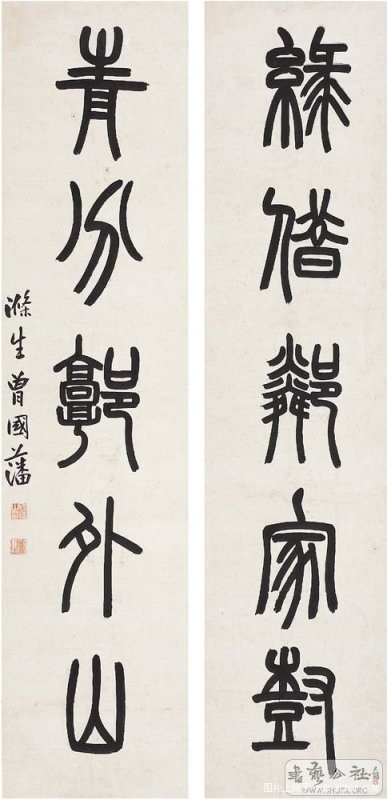 綠借鄰家樹
青分郭外山
滌生曾國藩
書藝公社
WWW.SHUFA.ORG